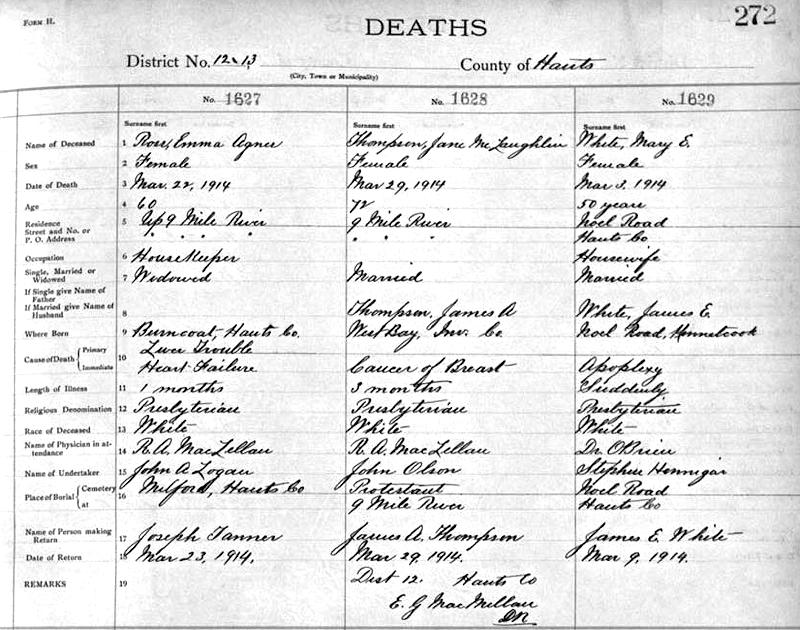 FORM H.
272
DEATHS
District No. 12 & 13 County of Hants
(City, Town or Municipality)
No. 1627 No. 1628 No. 1629
Surname first Surname first Surname first
Name of Deceased 1 Ross, Emma Agner Thompson, Jane McLaughlin White, Mary E.
Sex 2 Female Female Female
Date of Death 3 Mar. 22, 1914 Mar 29, 1914 Mar 3. 1914
Age 4 60 72 50 years
Residence Street and No. or P. O. Address 5 Up 9 Mile River 9 Mile River Noel Road
" " " " " Hants Co
Occupation 6 HouseKeeper Housewife
Single, Married or Widowed 7 Widowed Married Married
If Single give Name of Father
If Married give Name of Husband 8 Thompson, James A White, James E.
Where Born 9 Burncoat, Hants Co. West Bay, Inv. Co. Noel Road, Kennetcook
Cause of Death { Primary 10 Liver Trouble
Immediate Heart Failure Cancer of Breast Apoplexy
Length of Illness 11 1 months 3 months Suddenly
Religious Denomination 12 Presbyterian Presbyterian Presbyterian
Race of Deceased 13 White White White
Name of Physician in attendance 14 R. A. MacLellan R. A. MacLellan Dr O'Brien
Name of Undertaker 15 John A Logan John Olson Stephen Hennigar
Place of Burial { Cemetery at 16 Milford, Hants Co Protestant Noel Road
9 Mile River Hants Co
Name of Person making Return 17 Joseph Tanner James A. Thompson James E. White
Date of Return 18 Mar 23. 1914. Mar 29. 1914. Mar 9. 1914.
REMARKS 19 Dist 12. Hants Co
E. G MacMillan
DR